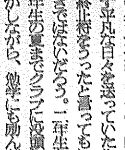 す平凡な日々を送っていた
終止符をうったと言っても
さではないだろう。二年生
年生の夏までクラブに没頭
かしながら、勉学にも励ん